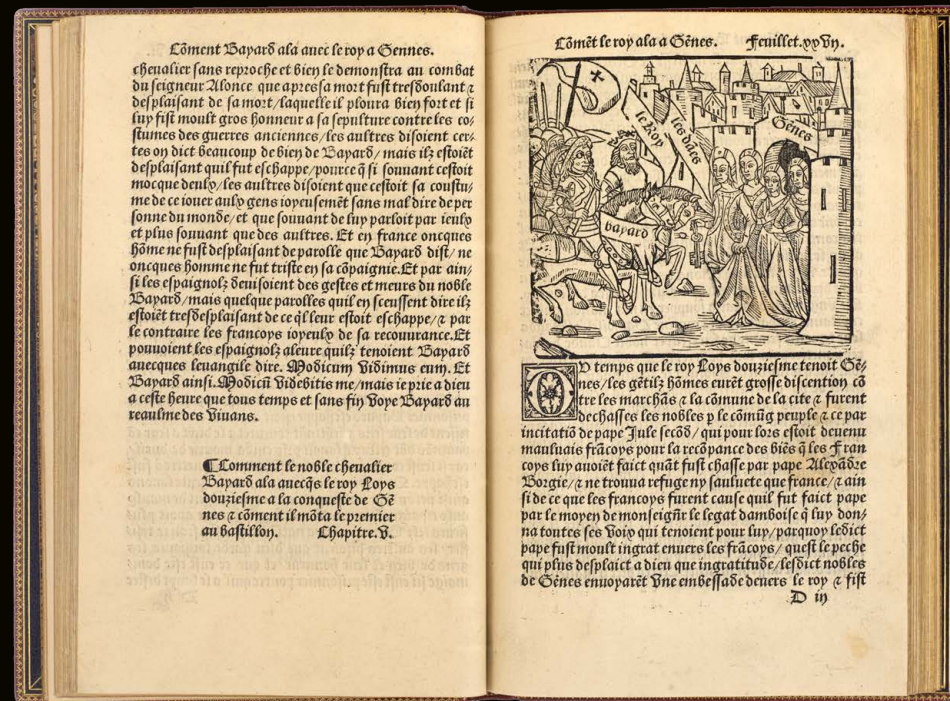 Cõment Bayard ala avec le roy a Gennes.
chevalier sans reproche et bien le demonstra au combat
du seigneur Alonce que apres sa mort fust tresdoulant ⁊
desplaisant de sa mort/laquelle il ploura bien fort et si
luy fist moult gros honneur a sa sepulture contre les co⸗
stumes des guerres anciennes/les aultres disoient cer⸗
tes on dict beaucoup de bien de Bayard/ mais ilz estoiẽt
desplaisant quil fut eschappe/pource q̃ si souuant cestoit
mocque deulx/les aultres disoient que cestoit sa coustu⸗
me de ce iouer aulx gens ioyeusemẽt sans mal dire de per
sonne du monde/et que souuant de luy parloit par ieulx
et plus souuant que des aultres. Et en france oncques
hõme ne fust desplaisant de parolle que Bayard dist/ ne
oncques homme ne fut triste en sa cõpaignie.Et par ain⸗
si les espaignolz deuisoient des gestes et meurs du noble
Bayard/mais quelque parolles quil en sceussent dire ilz
estoiẽt tresdesplaisant de ce q̃l leur estoit eschappe/⁊ par
le contraire les francoys ioyeulx de sa recouurance.Et
pouuoient les espaignolz aleure quilz tenoient Bayard
auecques leuangile dire. Modicum vidimus eum. Et
Bayard ainsi.Modicũ videbitis me/mais ie prie a dieu
a ceste heure que tous temps et sans fin voye Bayard au
reaulme des viuans.
¶Comment le noble chevalier
Bayard ala auecq̃s le roy Loys
douziesme a la conqueste de Gẽ
nes ⁊ cõment il mõta le premier
au bastillon. Chapitre.v.
Cõmẽt le roy ala a Gẽnes. Feuillet.xxvij.
le Roy
les dãces
Gẽnes
bayard
OV temps que le roy Loys douziesme tenoit Gẽ⸗
nes/les gẽtilz hõmes eurẽt grosse discention cõ
tre les marchãs ⁊ la cõmune de la cite ⁊ furent
dechasses les nobles p le comũg peuple ⁊ ce par
incitatiõ de pape Jule secõd/ qui pour lors estoit deuenu
mauluais frãcoys pour la recõpance des biẽs q̃ les Fran
coys luy auoiẽt faict quãt fust chasse par pape Alexãdre
Borgie/⁊ ne trouua refuge ny sauluete que france/⁊ ain
si de ce que les francoys furent cause quil fut faict pape
par le moyen de monseignr̃ le legat damboise q̃ luy don⸗
na toutes ses voix qui tenoient pour luy/parquoy ledict
pape fust moult ingrat enuers les frãcoys/ quest le peche
qui plus desplaict a dieu que ingratitude/lesdict nobles
de Gẽnes enuoyarẽt vne embessade deuers le roy ⁊ fist
D iij